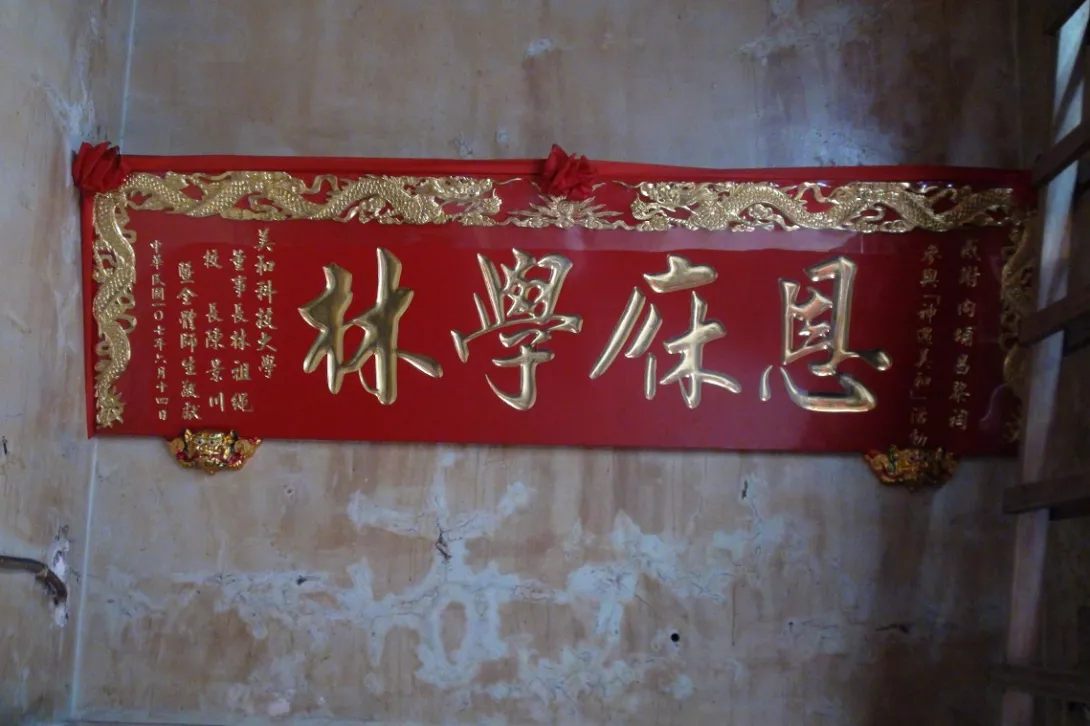 感謝內埔昌黎祠
參與「神遇美和」活動
恩庥學林
美和科技大學
董事長林祖繩
校長陳景川
暨全體師生敬獻
中華民國一〇七年六月十四日